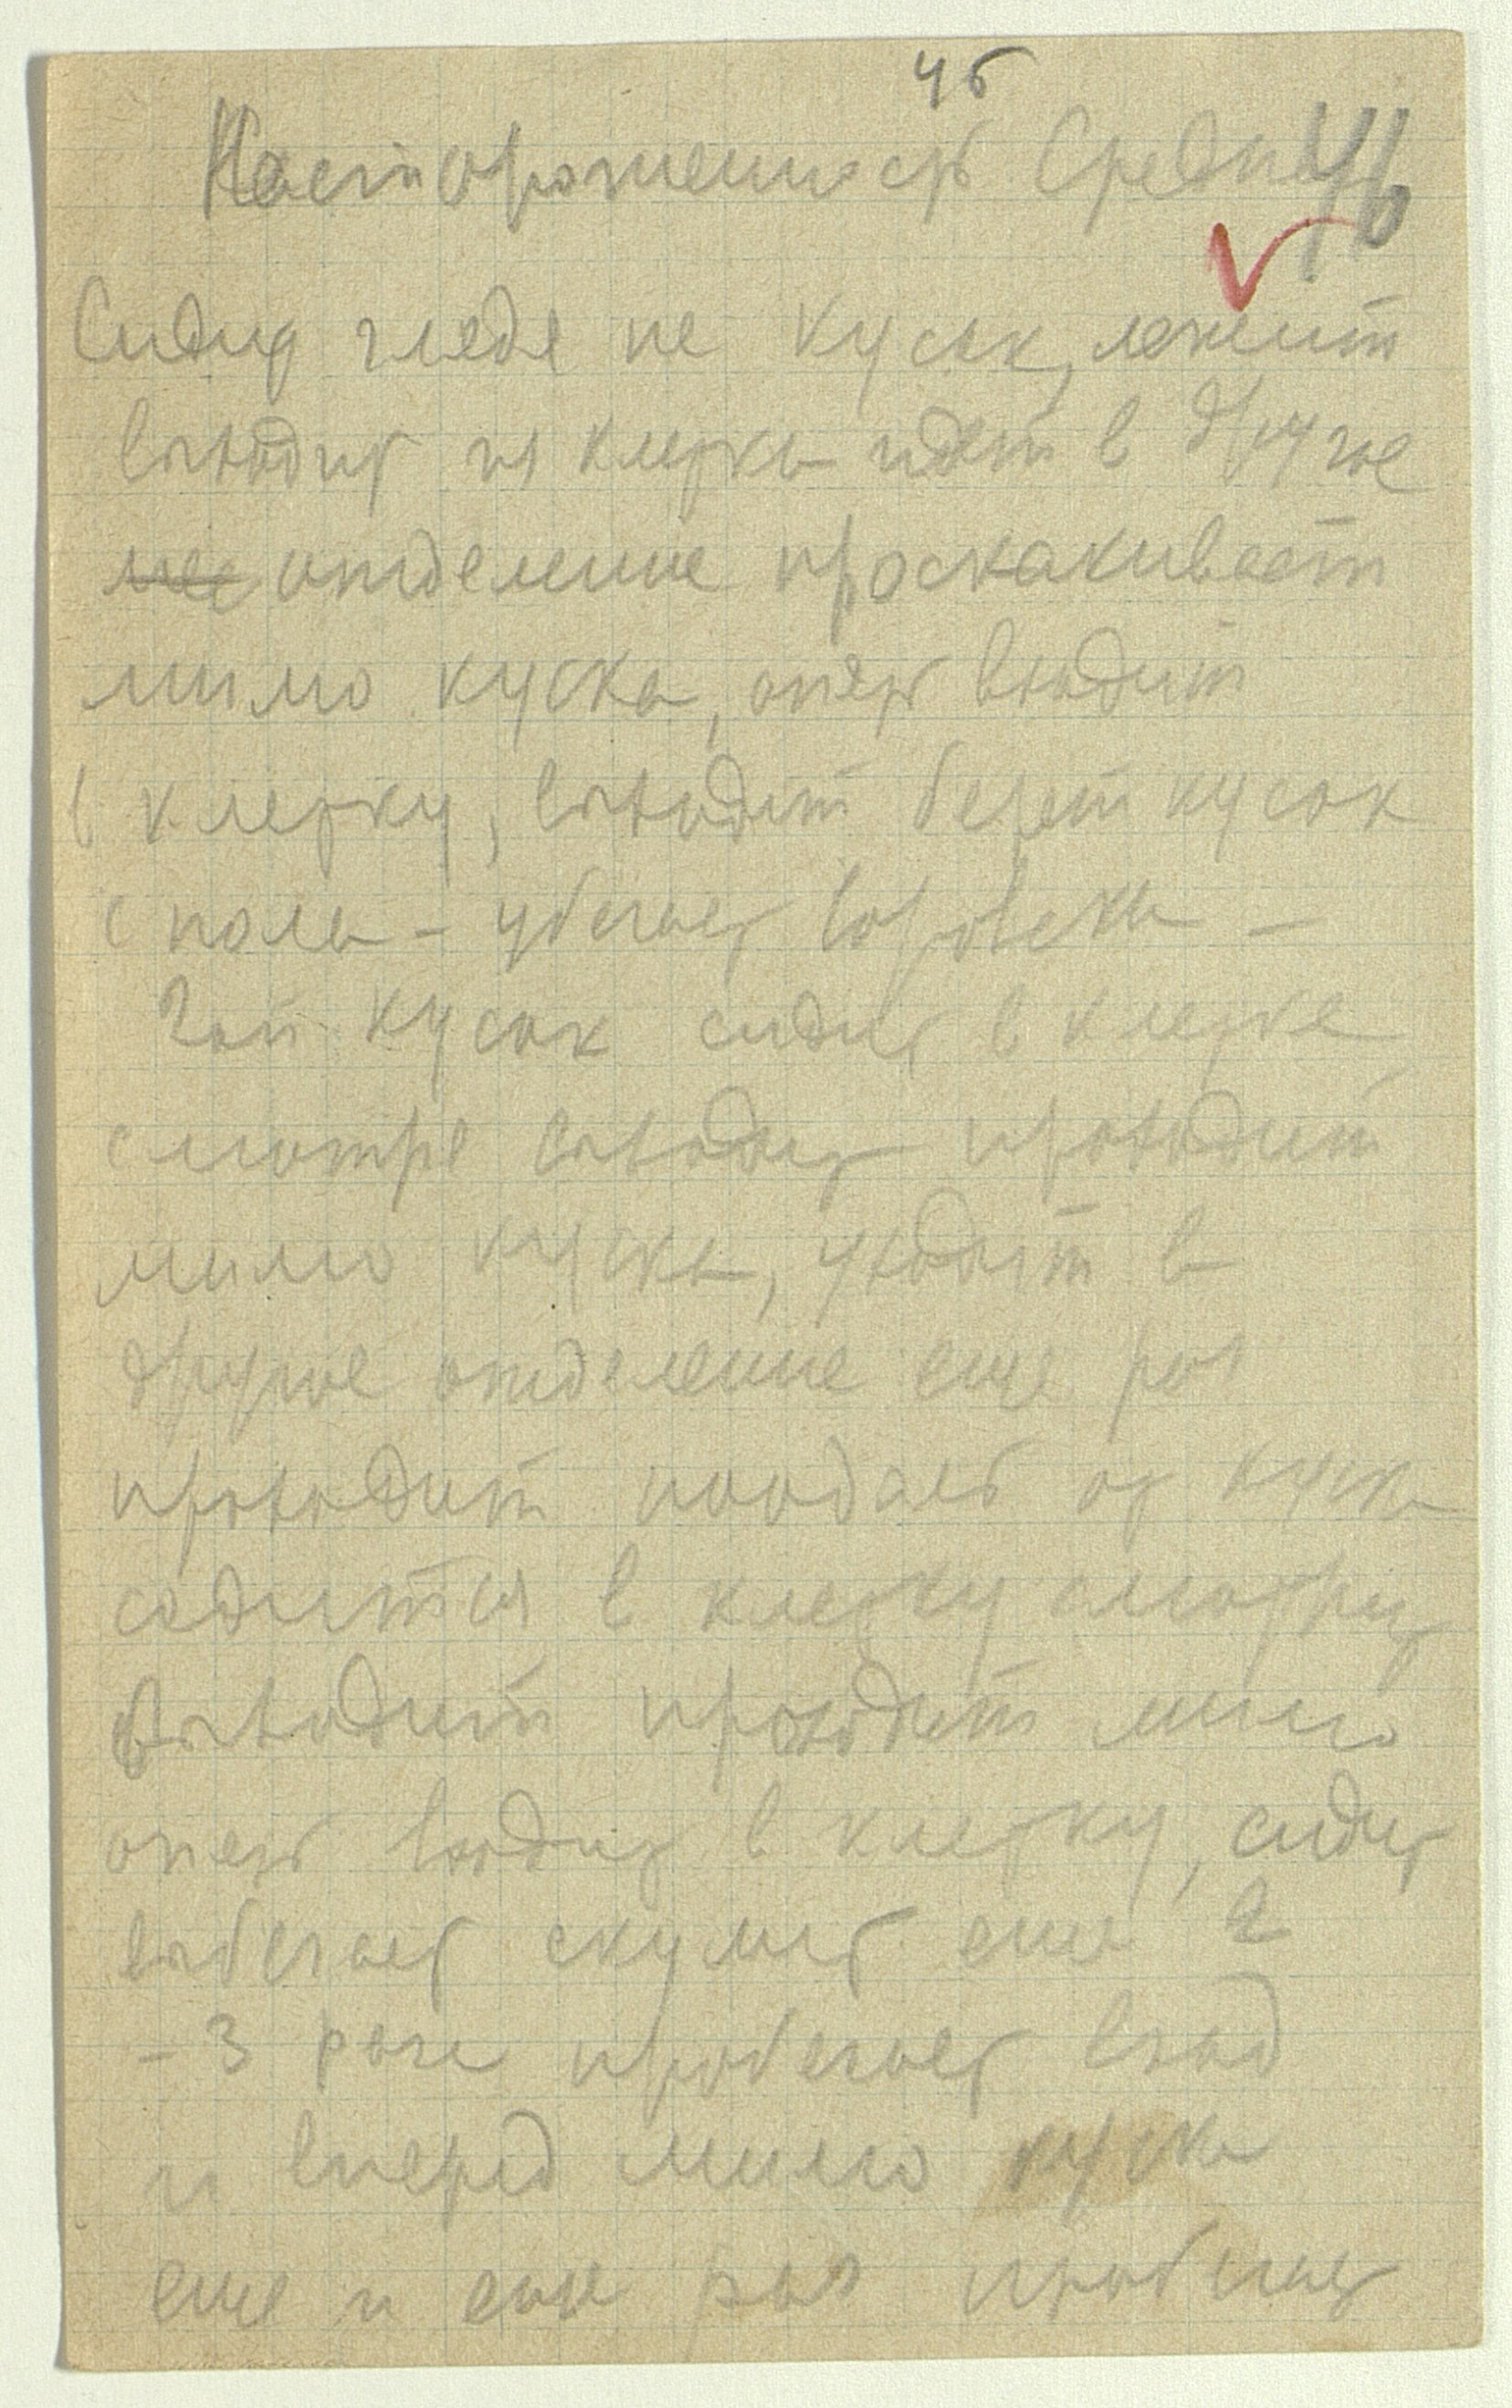 46
Настороженность Средн 46
Сидит гледя на кусок, лежит
выходит из клетки идет в другое
отделение проскакивает
мимо куска, опять входит
в клетку, выходит берет кусок
с пола - убегает воровски -
2ой кусок сидит в клетке
смотре выходит проходит
мимо куска, уходит в
другое отделение еще раз
проходит поодаль от куска
садится в клетку смотрит
выходит проходит мимо
опять входит в клетку, сидит
выбегает скулит еще 2
- 3 раза пробегает взад
и вперед мимо куска
еще и еще раз пробегает